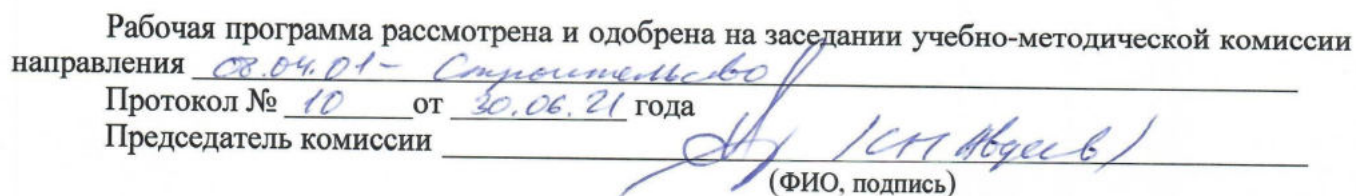 Рабочая программа рассмотрена и одобрена на заседании учебно-методической комиссии
направления 08.04.01 - Строительство
Протокол № 10 от 30.06.21 года
Председатель комиссии (СН Авдеев)
(ФИО, подпись)